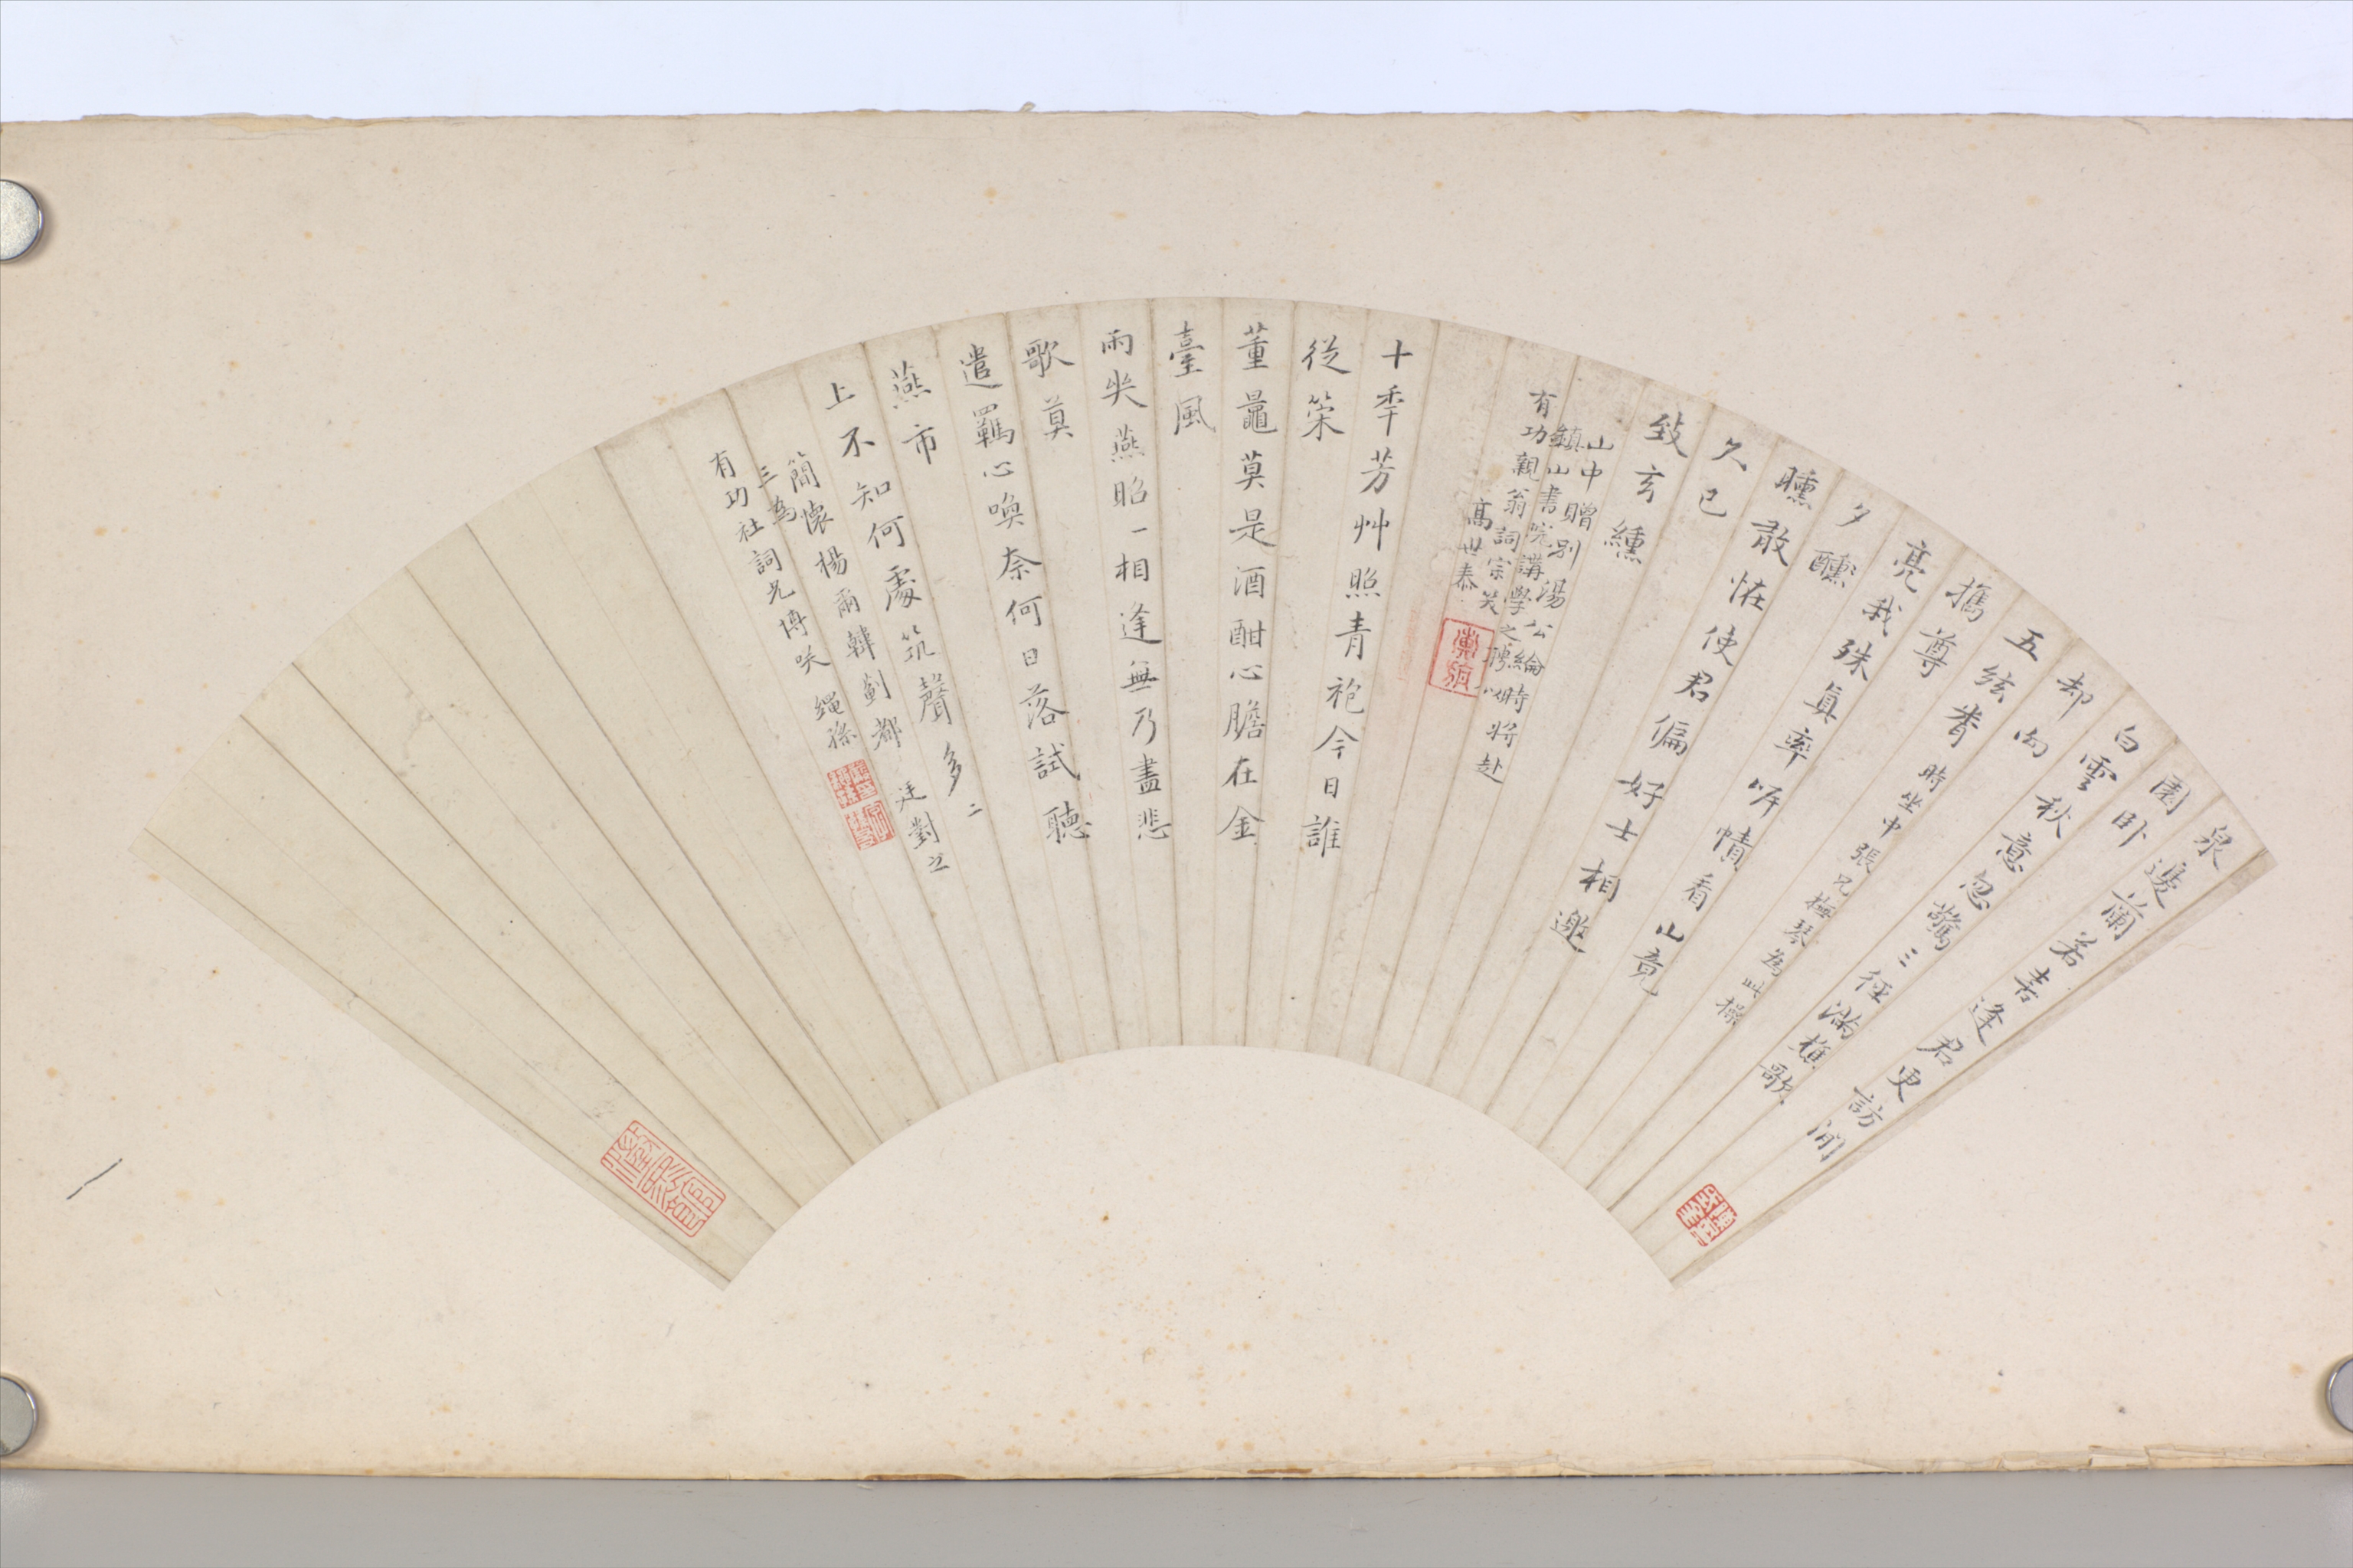 泉邊蘭若喜逢君更訪閒
園卧
白雲秋意忽驚三徑滿樵歌
却向
五絃 時坐中張兄撫琴為此操
攜尊
亮我殊真率岸幘看山竟
夕醺
曛敢怪使君偏好士相邀
久已
致玄纁
山中贈別湯公綸時將赴
鎮山書院講學之聘以
有功親翁詞宗笑
高世泰
十季芳艸照青袍今日誰
從策
董鼂莫是酒酣心膽在金
臺風
雨失燕昭一相逢無乃盡悲
歌莫
遣羈心喚奈何日落試聽
燕市
上不知何處筑聲多 二
簡懷楊爾韓薊都 廷對之
三為
有功社詞兄博咲 繩孫